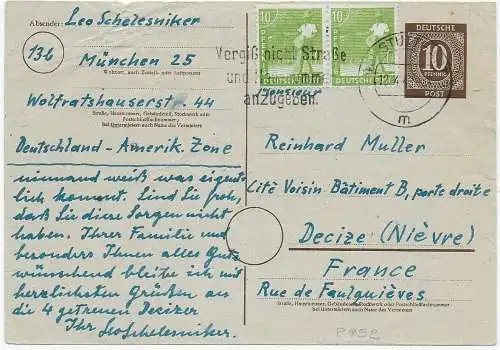 Absender: Leo Schelesniker
13b
München 25
Wohnort, auch Zustell- oder Leitpostamt
Wolfratshauserstr. 44
Straße, Hausnummer, Gebäudeteil, Stockwerk oder
Postschließfachnummer;
bei Untermietern auch Name des Vermieters
Deutschland - Amerik. Zone
niemand weiß was eigent-
lich kommt. Sind Sie froh,
daß Sie diese Sorgen nicht
haben. Ihrer Familie und
besonders Ihnen alles Gute
wünschend bleibe ich mit
herzlichsten Grüßen an
die 4 getreuen Decizer
Ihr
10 10
DEUTSCHE POST
DEUTSCHE
10
PFENNIG
POST
Vergiß nicht Straße
und
anzugeben.
m
Monsieur
Reinhard Muller
Cité Voisin. Bâtiment B, porte droite
Decize (Nièvre)
France
Rue de Faulquièves
Straße, Hausnummer, Gebäudeteil, Stockwerk oder Postschließfachnummer
bei Untermietern auch Name des Vermieters
P 952